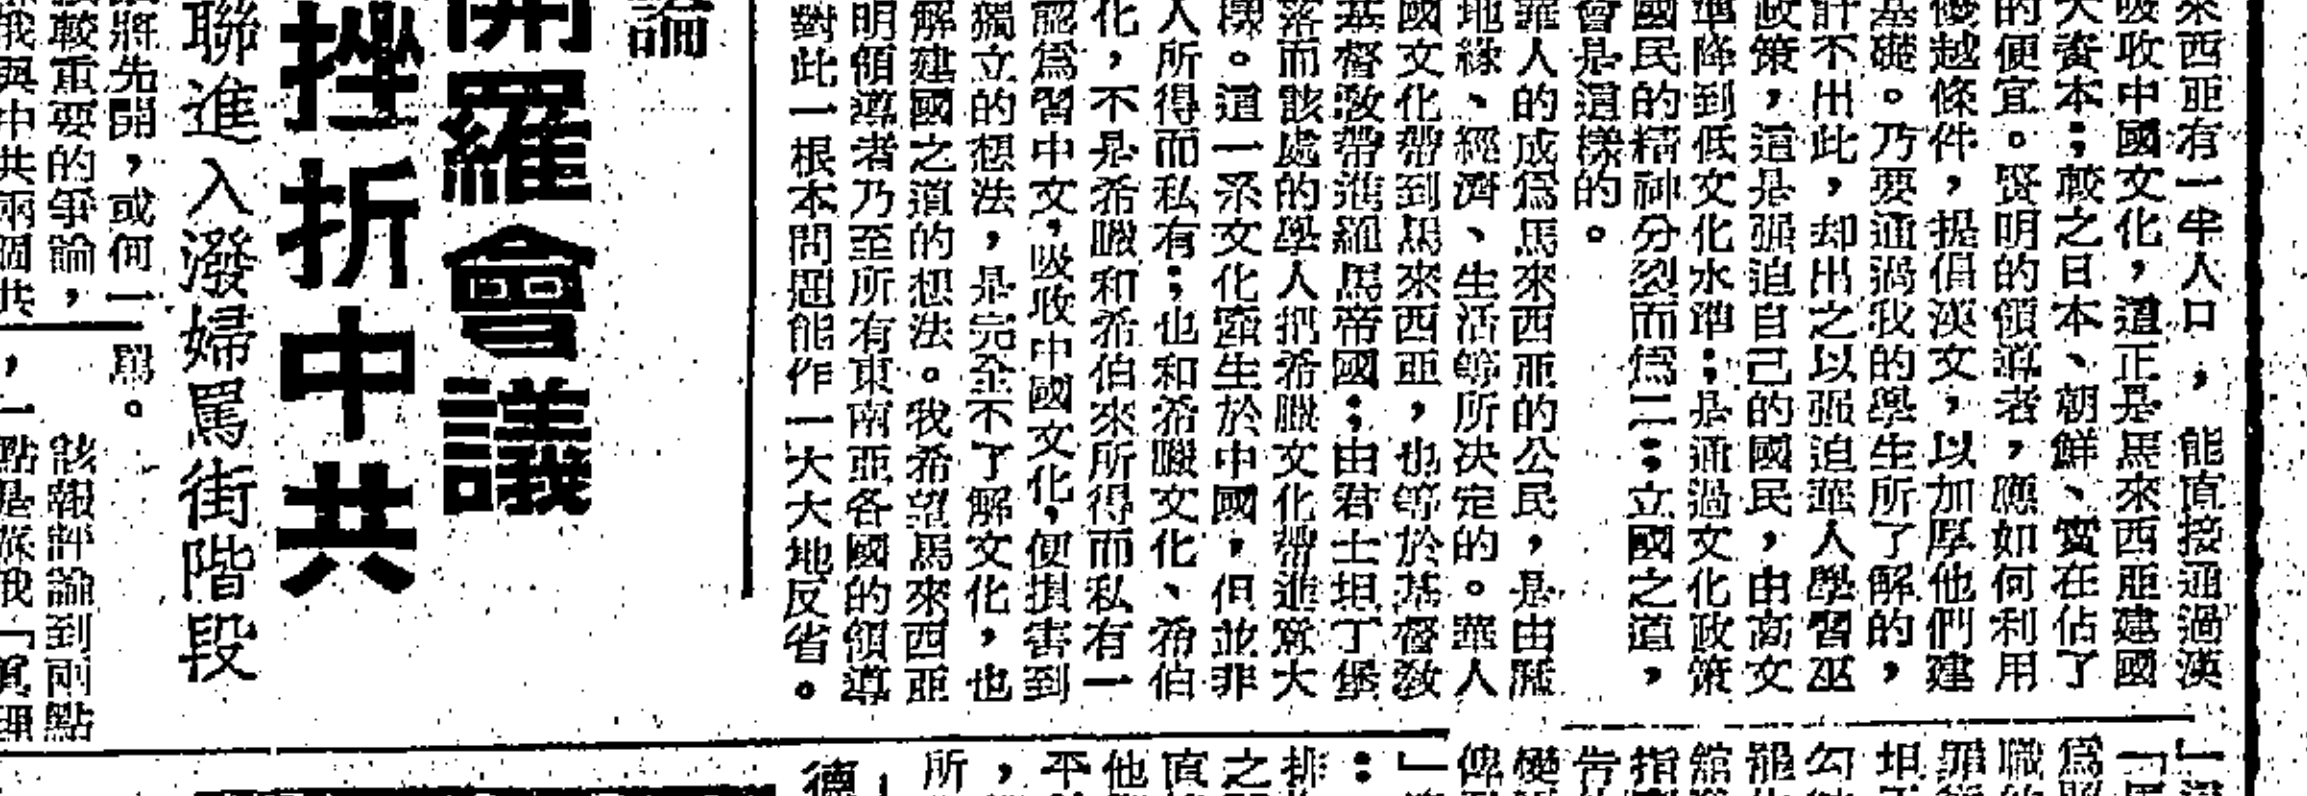 來西亞有一半人口，能直接通過漢
吸收中國文化，這正是馬來西亞建國
大資本；較之日本、朝鮮、實在佔了
的便宜。賢明的領導者，應如何利用
優越條件，提倡漢文，以加厚他們建
基礎。乃要通過我的學生所了解的，
計不出此，却出之以强迫華人學習巫
政策，這是强迫自己的國民，由高文
準降到低文化水準；是通過文化政策
國民的精神分裂而爲二；立國之道，
會是這樣的。
華人的成爲馬來西亞的公民，是由歷
地緣、經濟、生活等所決定的。華人
國文化帶到馬來西亞，也等於基督敎
基督敎帶進羅馬帝國；由君士坦丁堡
落而該處的學人把希臘文化帶進意大
樣。這一系文化產生於中國，但並非
人所得而私有；也和希臘文化、希伯
化，不是希臘和希伯來所得而私有一
認爲習中文，吸收中國文化，便損害到
獨立的想法，是完全不了解文化，也
解建國之道的想法。我希望馬來西亞
明領導者乃至所有東南亞各國的領導
對此一根本問題能作一大大地反省。
論
開羅會議
挫折中共
聯進入潑婦罵街階段
將先開，或何一
較重要的爭論，
俄與中共兩個共
罵。
該報評論到兩點
，一點是蘇俄「眞理
爲
職
坦
勾
龍
舘
指
告
變
俾
：
排
之
直
他
平
，
所
德